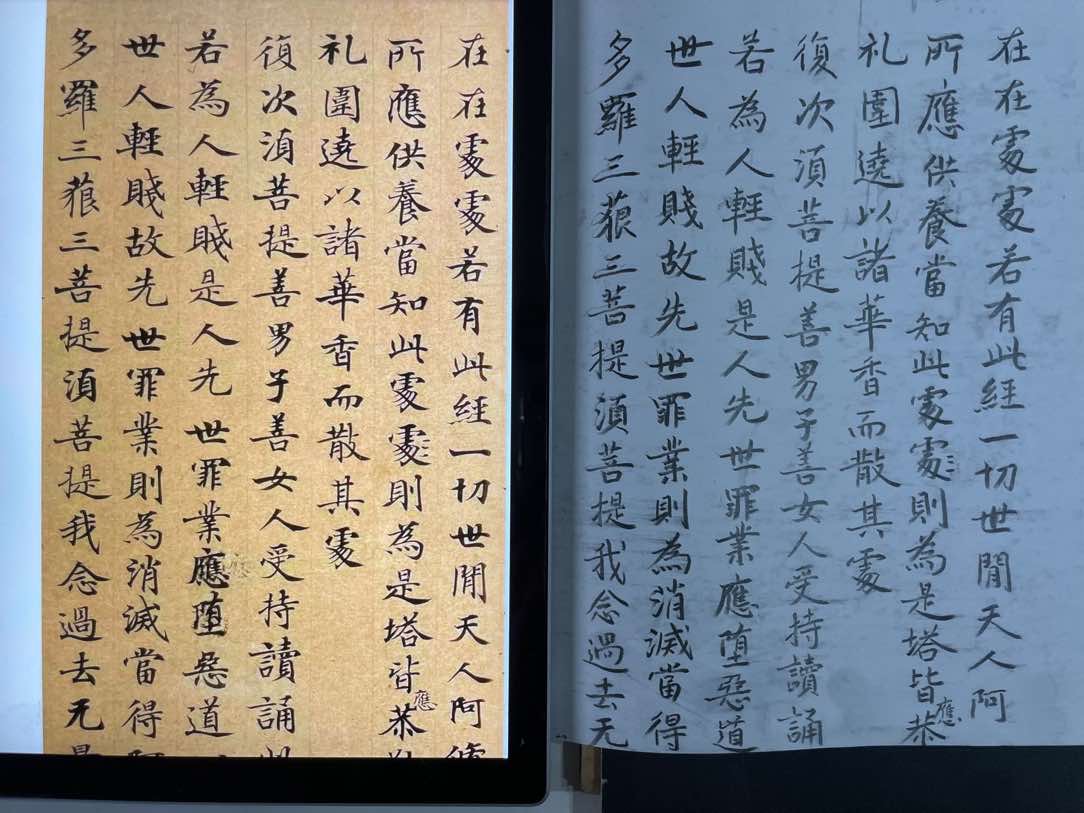 在在處處若有此經一切世閒天人阿脩
所應供養當知此處處則為是塔皆應恭
礼圍遶以諸華香而散其處
復次須菩提善男子善女人受持讀誦此
若為人輕賤是人先世罪業應應墮惡道
世人輕賤故先世罪業則為消滅當得阿
多羅三藐三菩提須菩提我念過去无量
在在處處若有此經一切世閒天人阿
所應供養當知此處處則為是塔皆應恭
礼圍遶以諸華香而散其處
復次須菩提善男子善女人受持讀誦
若為人輕賤是人先世罪業應墮惡道
世人輕賤故先世罪業則為消滅當得
多羅三藐三菩提須菩提我念過去无